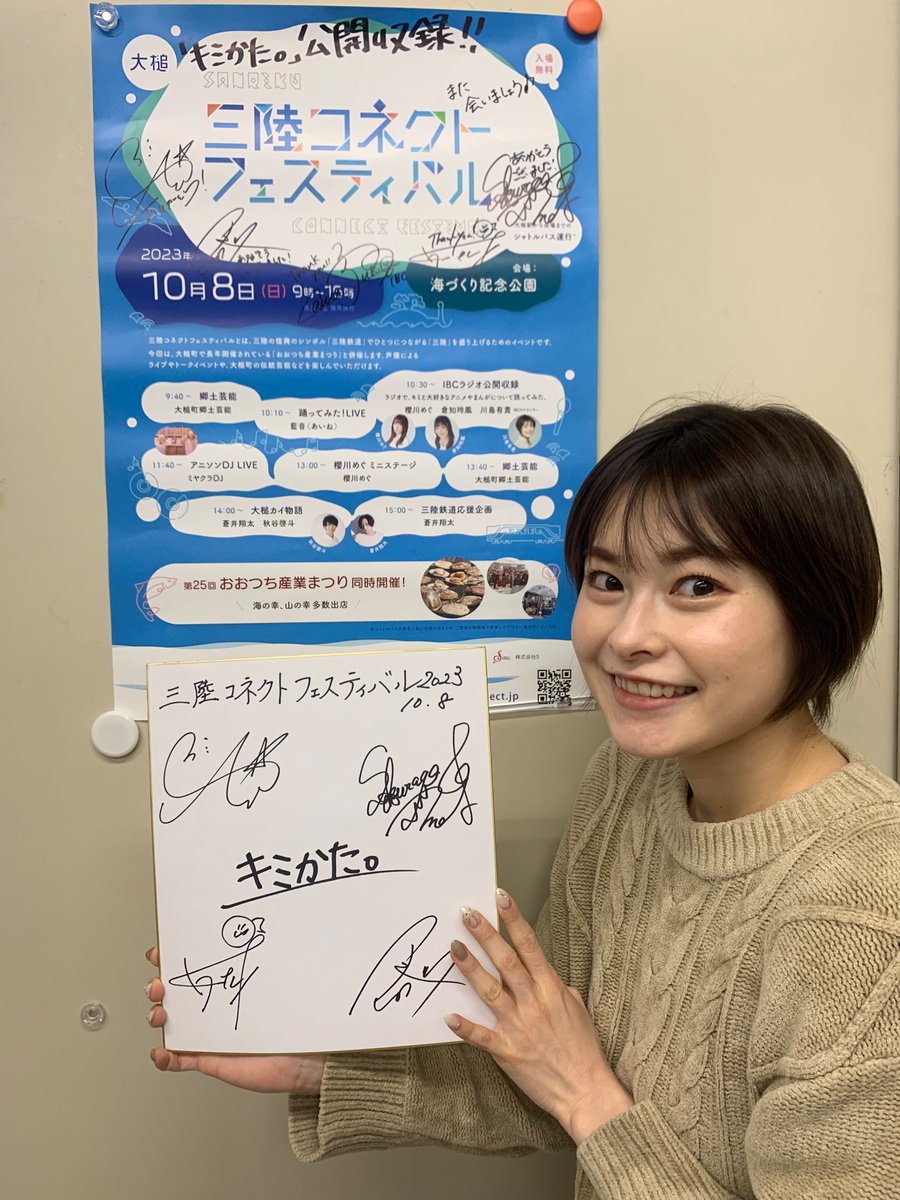 「キミかた。」公開収録!!
大槌
入場
無料
SANRIKU
また
会いましょう♪
三陸コネクト
フェスティバル
ありがとう
ございました!
CONNECT FESTIVAL
Thank you!
シャトルバス運行
2023年
10月8日(日) 9時~16時
会場:
海づくり記念公園
IBC
三陸コネクトフェスティバルとは、三陸の復興のシンボル「三陸鉄道」でひとつにつながる「三陸」を盛り上げるためのイベントです。
今回は、大槌町で長年開催されている「おおつち産業まつり」と併催します。声優による
ライブやトークイベントや、大槌町の伝統芸能などを楽しんでいただけます。
9:40~ 郷土芸能
大槌町郷土芸能
10:10~ 踊ってみた!LIVE
藍音(あいね)
10:30~ IBCラジオ公開収録
ラジオで、キミと大好きなアニメやまんがについて語ってみた。
櫻川めぐ 倉知玲鳳 川島有貴
11:40~ アニソンDJ LIVE
ミヤクラDJ
13:00~ 櫻川めぐ ミニステージ
櫻川めぐ
13:40~ 郷土芸能
大槌町郷土芸能
14:00~ 大槌カイ物語
蒼井翔太 秋谷啓斗
15:00~ 三陸鉄道応援企画
蒼井翔太
第25回 おおつち産業まつり 同時開催!
海の幸、山の幸 多数出店
Sinc. 株式会社S
ect.jp
三陸コネクトフェスティバル2023
10.8
キミかた。